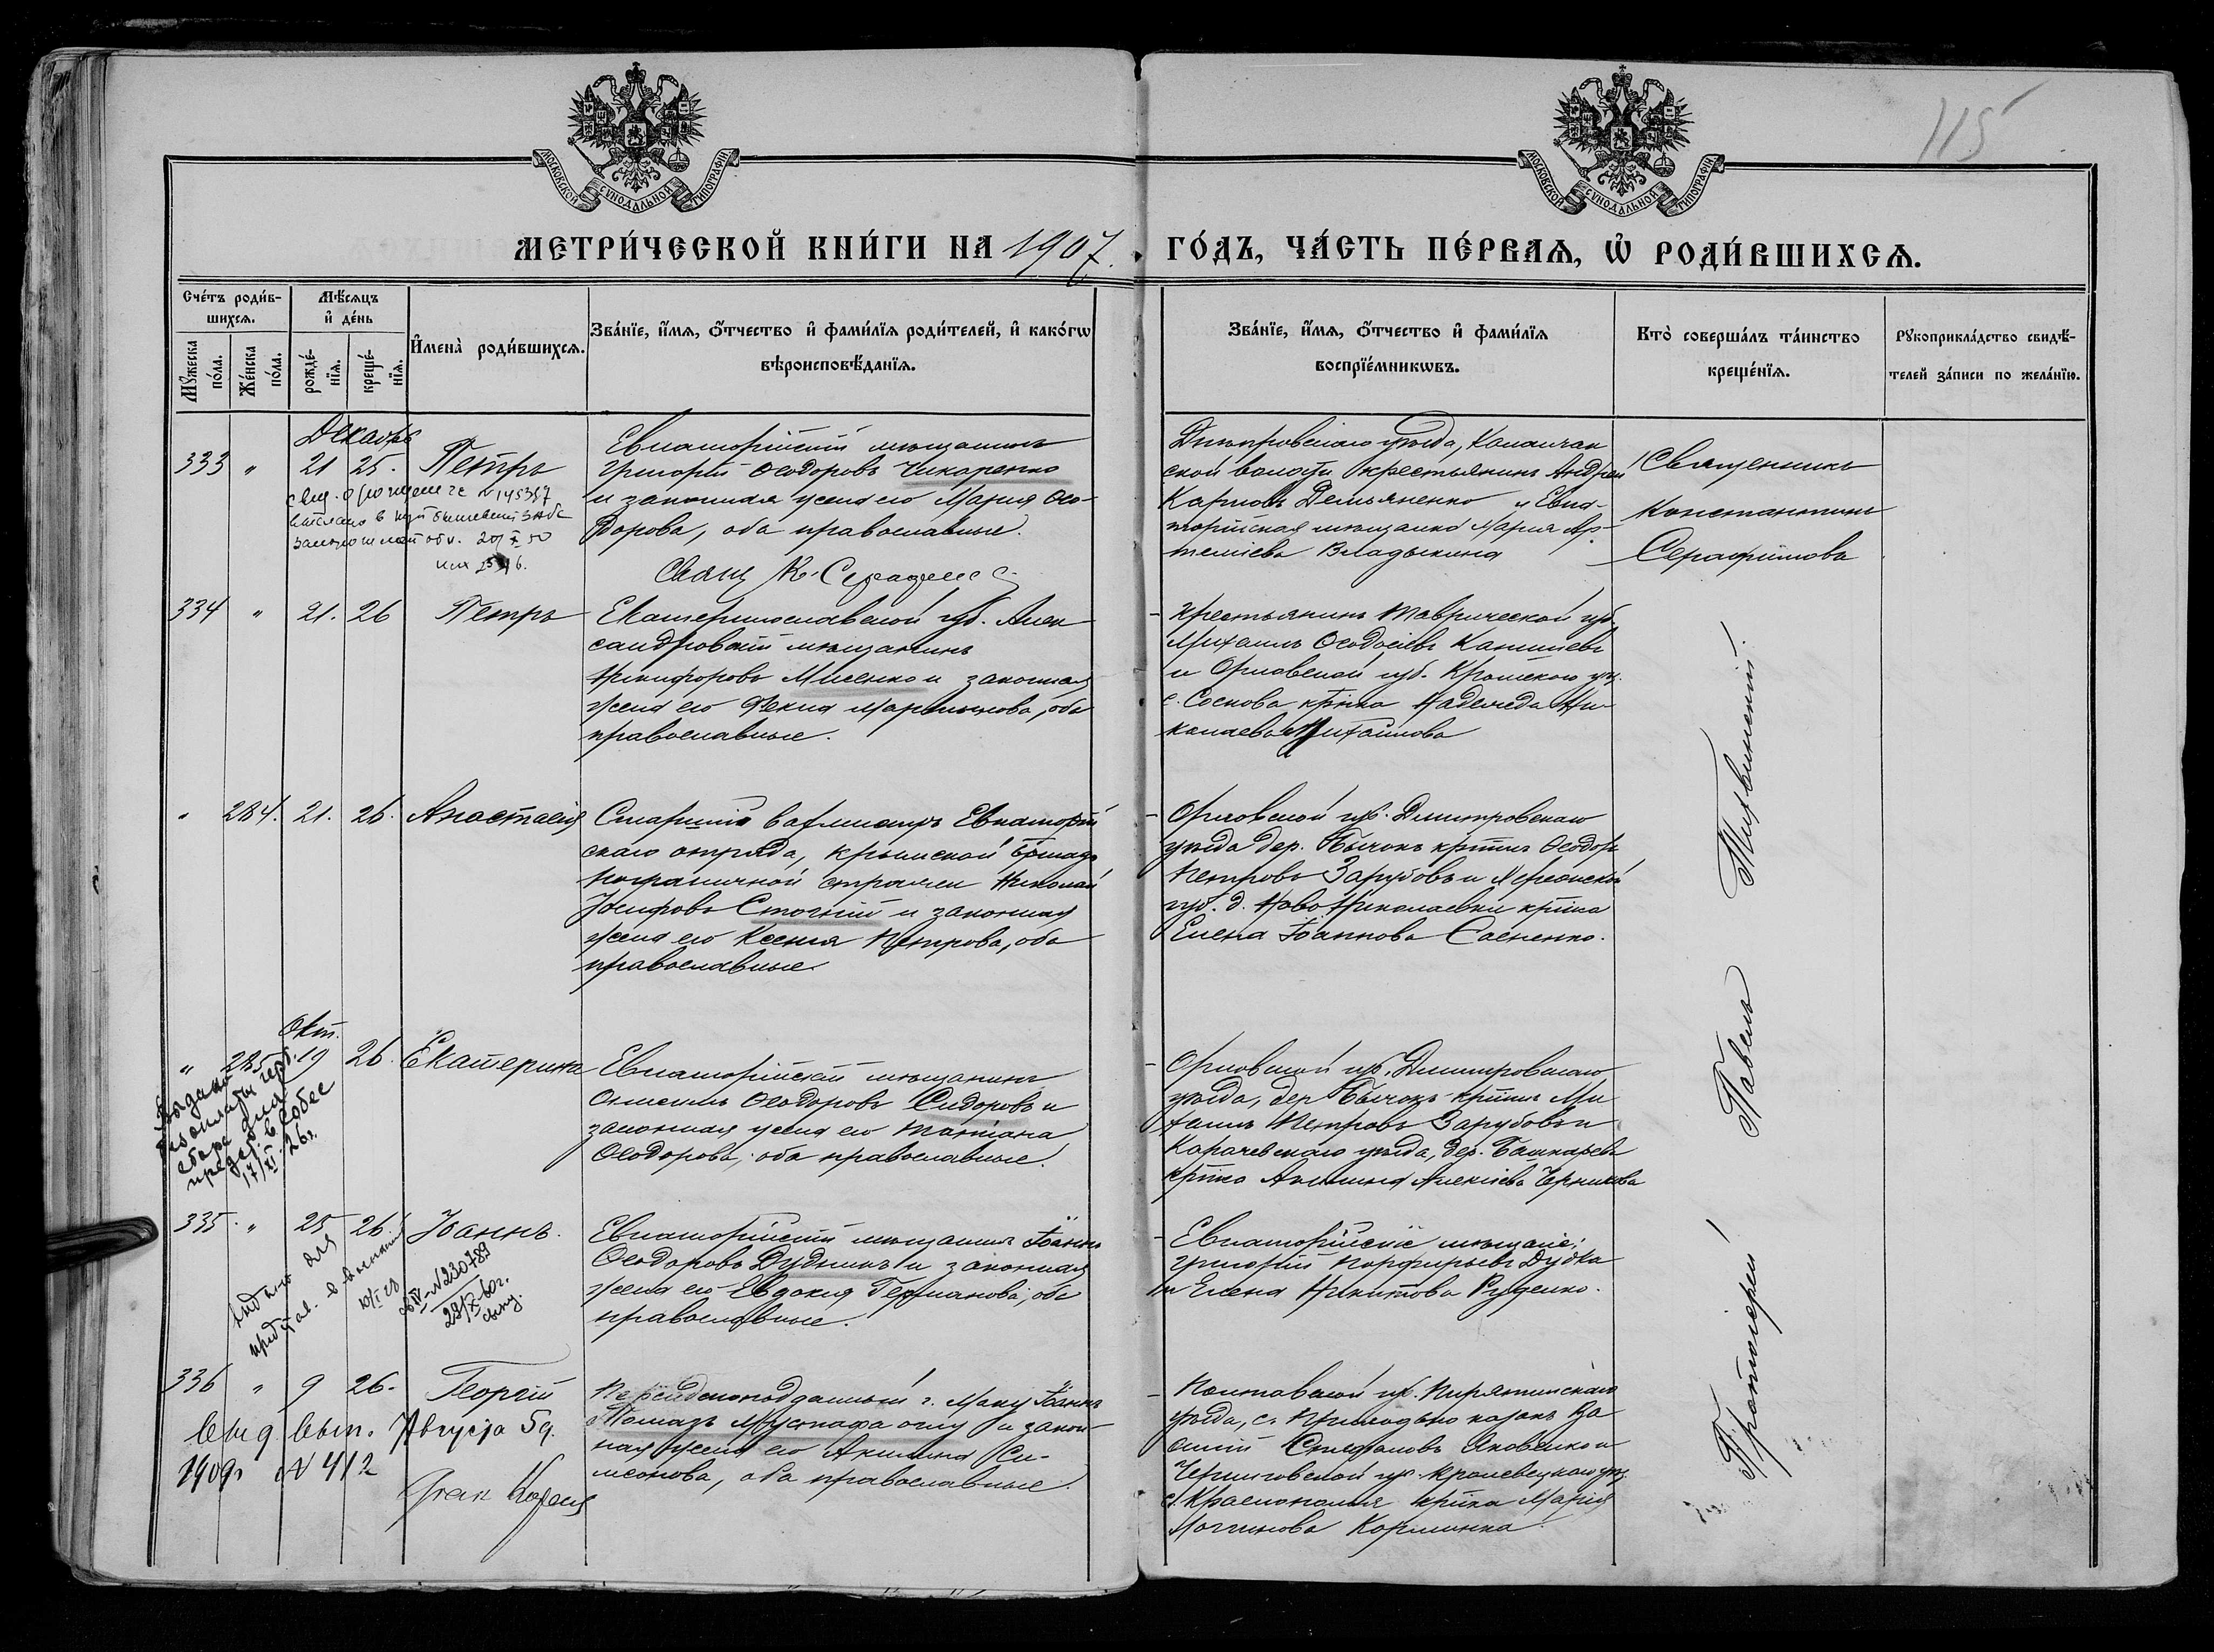 115
МОСКОВСКОЙ СѴНОДАЛЬНОЙ ТИПОГРАФІИ
МОСКОВСКОЙ СѴНОДАЛЬНОЙ ТИПОГРАФІИ
МЕТРИ́ЧЕСКОЙ КНИ́ГИ НА 1907. ГО́ДЪ, ЧА́СТЬ ПЕ́РВАѦ, Ѽ РОДИ́ВШИХСѦ.
Сче́тъ роди́в-
шихсѧ.
Мꙋ́жеска по́ла.
Же́нска по́ла.
Мѣ́сѧцъ
и҆ де́нь
рожде́-нїѧ.
креще́-нїѧ.
И҆мена̀ роди́вшихсѧ.
Зва́нїе, и҆́мѧ, ѻ҆́тчество и҆ фами́лїѧ роди́телей, и҆ како́гѡ
вѣроисповѣ́данїѧ.
Зва́нїе, и҆́мѧ, ѻ҆́тчество и҆ фами́лїѧ
воспрїе́мникѡвъ.
Кто̀ соверша́лъ та́инство
креще́нїѧ.
Рꙋкоприкла́дство свидѣ́-
телей за́писи по жела́нїю.
Декабрь
333 " 21 25. Петръ
Евпаторійскій мѣщанинъ
Григорій Ѳеодоровъ Чикаренко
и законная жена его Марія Ѳео-
дорова, оба православные.
Свящ. К. Серафимов
Днѣпровскаго уѣзда, Каланчак
ской волости крестьянинъ Андрей
Карповъ Демьяненко и Евпа-
торійская мѣщанка Марія Ар-
теміева Владыкина
Священникъ
Константинъ
Серафимовъ
№ 145357
334 " 21. 26 Петръ
Екатеринославской губ. Алек
сандровскій мѣщанинъ
Никифоровъ Мисенко и законная
жена его Ѳекла Мартынова, оба
православные.
Крестьянинъ Таврической губ.
Михаилъ Ѳеодосіевъ
и Орловской губ. Кромскаго уѣз.
с. Соскова кр-нка Надежда Ни-
колаева Михайлова
" 284. 21. 26. Анастасія
Старшій вахмистръ Евпаторій
скаго отряда, Крымской бригады
пограничной стражи Николай
Іосифовъ Стогній и законная
жена его Ксенія Петрова, оба
православные.
Орловской губ. Дмитровскаго
уѣзда дер. Бычокъ кр-нинъ Ѳеодоръ
Петровъ Зарубовъ и Херсонской
губ. д. Ново Николаевки кр-нка
Елена Іоаннова Саенко.
Окт.
" 285. 19 26. Екатерина
Евпаторійскій мѣщанинъ
Ѳеодоровъ Сидоровъ и
законная жена его Татіана
Ѳеодорова, оба православные.
Орловской губ. Дмитровскаго
уѣзда, дер. Бычокъ кр-нинъ Ми
хаилъ Петровъ Зарубовъ и
Карачевскаго уѣзда, дер.
кр-нка Акилина Алексіева Черникова
Выдано
без оплаты герб.
сбора для
предст. в Собес
17/XI 26г.
335. " 25 26. Іоаннъ.
Евпаторійскій мѣщанинъ Іоаннъ
Ѳеодоровъ Дудникъ и законная
жена его Евдокія Германова, оба
православные.
Евпаторійскіе мѣщане:
Григорій Порфирьевъ Дудка
и Елена Никитова Руденко.
№230789
29/X 60г.
336 " 9 26. Георгій
Персидскоподданный г. Маку Іоаннъ
Мустафа оглу и закон
ная жена его Акилина Си-
меонова, оба православные.
Полтавской губ. Пирятинскаго
уѣзда, с. казакъ Ва
силій Стефановъ Яковенко и
Черниговской губ. Кролевецкаго уѣз.
с. Краснополья кр-нка Марія
Логгинова
Августа 5 д.
1909г №412
Протоіерей Павелъ Тихвинскій.